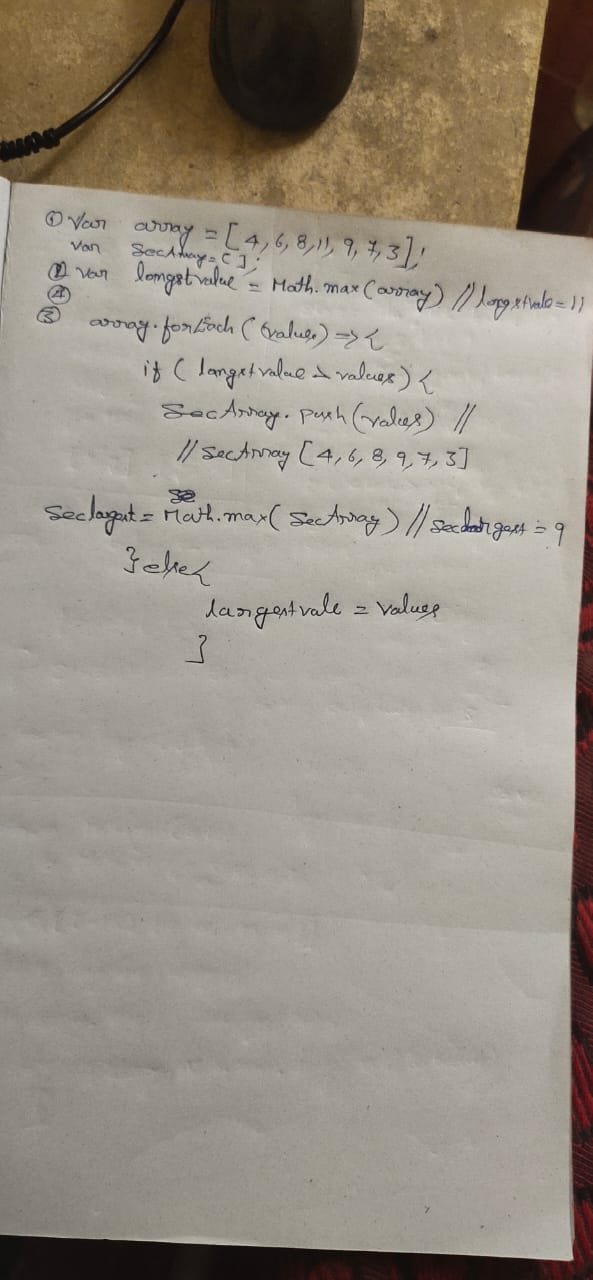 ① Var array = [4, 6, 8, 11, 9, 7, 3];
var SecArray = [];
② var longstvalue = Math.max(array) // longstvale = 11
②
③ array.forEach((values) => {
if (langstvalue > values) {
SecArray.push(values) //
// SecArray [4, 6, 8, 9, 7, 3]
Seclargest = Math.max(SecArray) // Seclargest = 9
} else {
largestvale = values
}